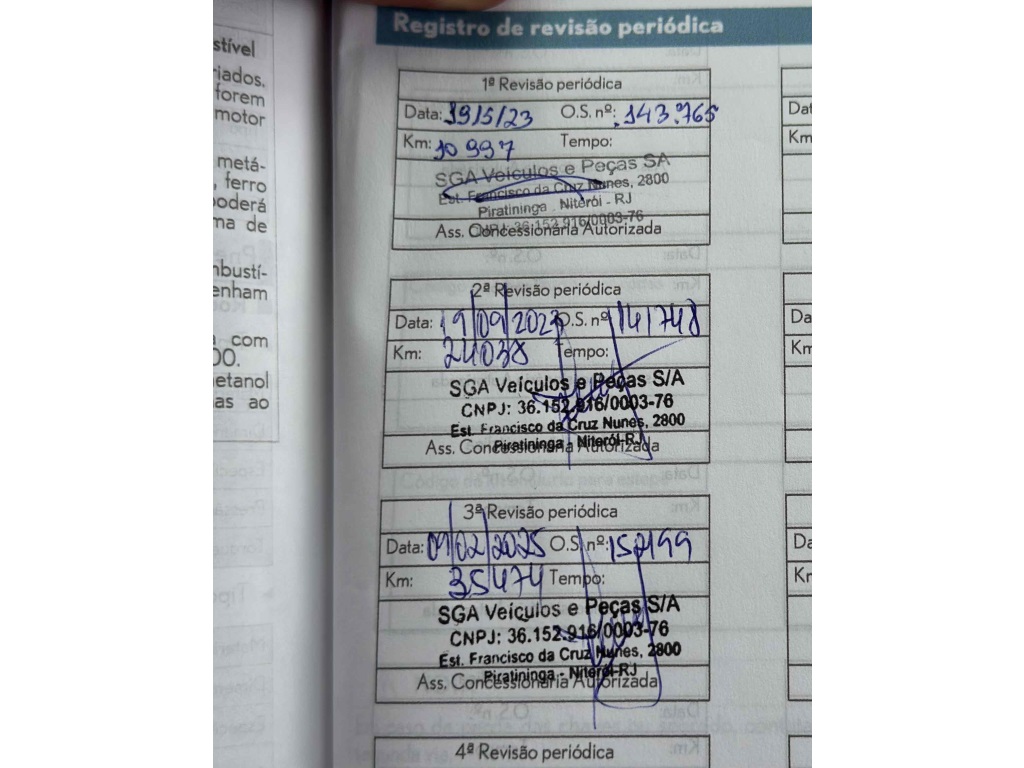 stível
iados,
forem
motor
metá-
, ferro
poderá
ma de
mbustí-
enham
com
00.
etanol
as ao
Registro de revisão periódica
1ª Revisão periódica
Data: 19/5/23 O.S. nº: 143.765
Km: 10 997 Tempo:
SGA Veículos e Peças SA
Est. Francisco da Cruz Nunes, 2800
Piratininga - Niterói - RJ
CNPJ: 36.152.916/0003-76
Ass. Concessionária Autorizada
2ª Revisão periódica
Data: 19/09/2023 O.S. nº 141748
Km: 24038 Tempo:
SGA Veículos e Peças S/A
CNPJ: 36.152.916/0003-76
Est. Francisco da Cruz Nunes, 2800
Piratininga - Niterói-RJ
Ass. Concessionária Autorizada
3ª Revisão periódica
Data: 09/02/2025 O.S. nº: 152199
Km: 35474 Tempo:
SGA Veículos e Peças S/A
CNPJ: 36.152.916/0003-76
Est. Francisco da Cruz Nunes, 2800
Piratininga - Niterói-RJ
Ass. Concessionária Autorizada
4ª Revisão periódica
Dat
Km
Da
Km
Da
Kr